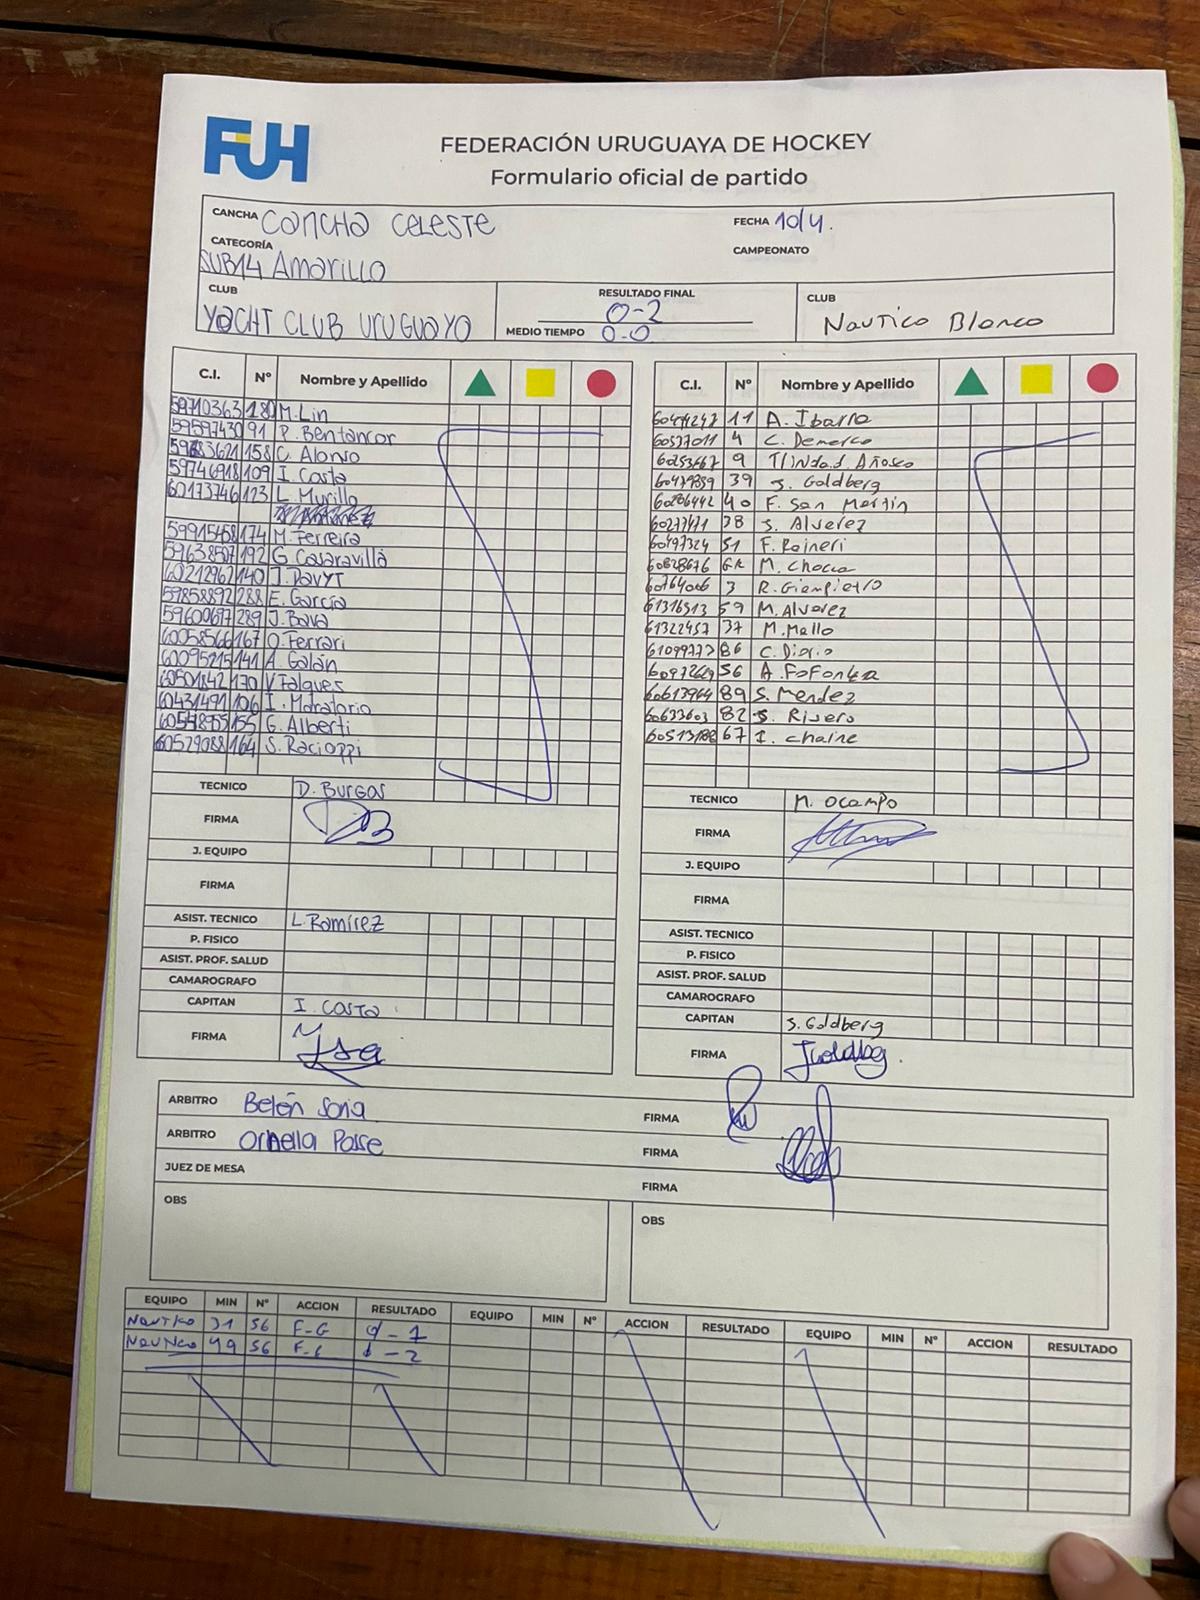 FUH
FEDERACIÓN URUGUAYA DE HOCKEY
Formulario oficial de partido
CANCHA CANCHA CELESTE FECHA 10/4.
CATEGORÍA SUB14 AMARILLO CAMPEONATO
CLUB YACHT CLUB URUGUAYO
RESULTADO FINAL 0-2
MEDIO TIEMPO 0-0
CLUB Nautico Blanco
C.I. Nº Nombre y Apellido
59710363 180 M. Lin
59597430 91 R. Bentancor
158 C. Alonso
59746918 109 I. Costa
60173746 123 L. Murillo
59915458 174 M. Ferreira
59638507 192 G Casaravilla
60212967 140 J. Davyt
59858892 288 E. García
59600697 289 J. Bava
60058566 167 O. Ferrari
60095215 141 A. Galán
60501842 170 V Falques
60431491 106 I. Moratorio
155 G. Alberti
60529088 164 S. Racioppi
TECNICO D. Burgos
FIRMA
J. EQUIPO
FIRMA
ASIST. TECNICO L. Ramírez
P. FISICO
ASIST. PROF. SALUD
CAMAROGRAFO
CAPITAN I. Costa
FIRMA
C.I. Nº Nombre y Apellido
11 A. Ibarra
60577011 4 C. Demarco
60253667 9 Trinidad Añasco
60479859 39 S. Goldberg
60286442 40 F. San Martin
60277471 38 S. Alvarez
60497324 51 F. Raineri
60828676 GK M. Chocca
60764006 3 R. Giampietro
61316513 59 M. Alvarez
61322457 37 M. Mello
61099777 86 C. Diorio
60972629 56 A. Fofonka
60613964 89 S. Mendez
60633603 82 S. Rivero
67 I. Chaine
TECNICO M. Ocampo
FIRMA
J. EQUIPO
FIRMA
ASIST. TECNICO
P. FISICO
ASIST. PROF. SALUD
CAMAROGRAFO
CAPITAN S. Goldberg
FIRMA
ARBITRO Belén Soria FIRMA
ARBITRO Ornella Posse FIRMA
JUEZ DE MESA FIRMA
OBS OBS
EQUIPO MIN Nº ACCION RESULTADO EQUIPO MIN Nº ACCION RESULTADO EQUIPO MIN Nº ACCION RESULTADO
Nautico 31 56 F-G 0-1
Nautico 49 56 - 2